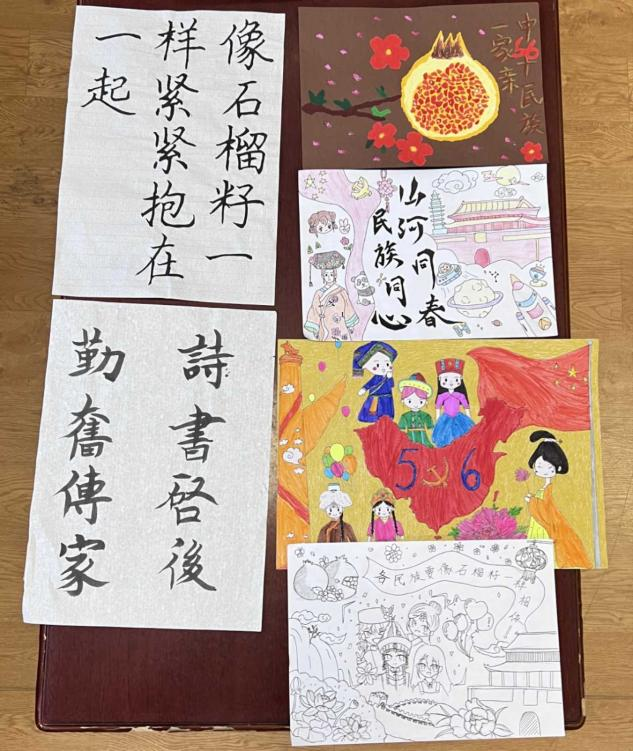 像石榴籽一
样紧紧抱在
一起
中56个民族
一家亲
山河同春
民族同心
詩書啓後
勤奮傳家
5 6
各民族要像石榴籽一